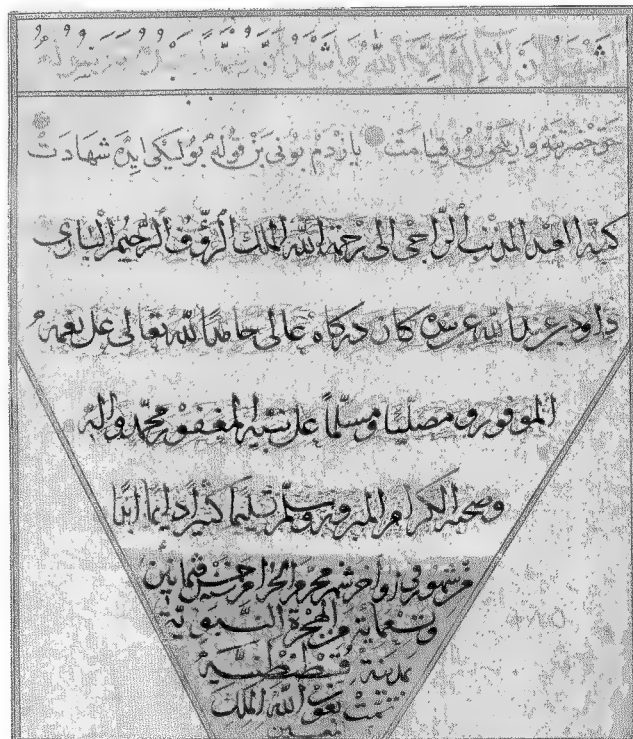 اَشْهَدُ اَنْ لَا اِلٰهَ اِلَّا اللّٰهُ وَاَشْهَدُ اَنَّ مُحَمَّدًا عَبْدُهُ وَرَسُولُهُ
حق حضرتنه واريجق روز قيامت يازدم بونى بن قوله بوليكى ايده شهادت
كتبه العبد المذنب الراجى الى رحمة الله الملك الرؤف الرحيم البارى
داود بن عبد الله عن بندە كان دركاه عالى حامدًا لله تعالى على نعمه
الموفور و مصليًا ومسلّماً على نبيه المغفور محمّد واله
وصحبه الكرام المبرور وسلّم تسليما كثيرًا دايما ابدًا
من شهور فى اواخر شهر محرم الحرام سنه خمس ثمانين
وتسعماية من الهجرة النّبويّة
بمدينة قسطنطنيّة
تمّت بعون الله الملك
معين